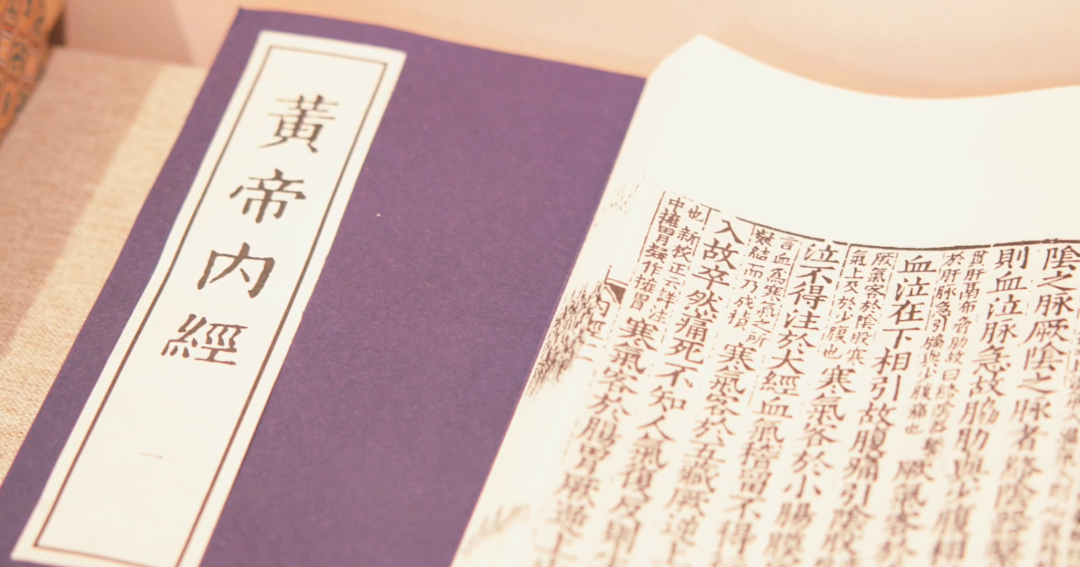 黃帝內經
一
陰之脉厥陰之脉者絡陰器繫
則血泣脉急故脇肋與少腹相
貫肝鬲布脅肋故曰絡陰器繫
於肝脉急引脇與少腹痛也
厥氣客於
血泣在下相引故腹痛引陰股
厥氣客於陰股寒
氣上及於少腹也
寒氣客於小腸膜
泣不得注於大經血氣稽留不得
言血爲寒氣之所
凝結而乃成積
寒氣客於五藏厥逆上
入故卒然痛死不知人氣復反則
也新校正云詳注
中擁冒疑作擁胃
寒氣客於腸胃厥逆上